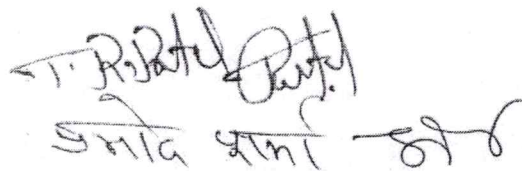 T. R. Patel Patel
प्रमोद शर्मा